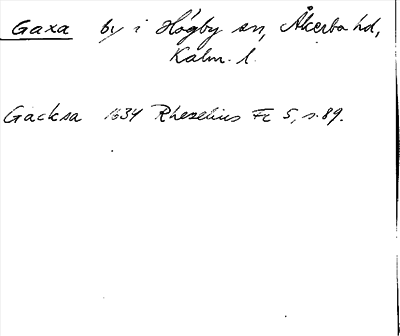 Gaxa by i Högby sn, Åkerbo hd,
Kalm. l.
Gacksa 1634 Rhezelius Fc 5, s. 89.